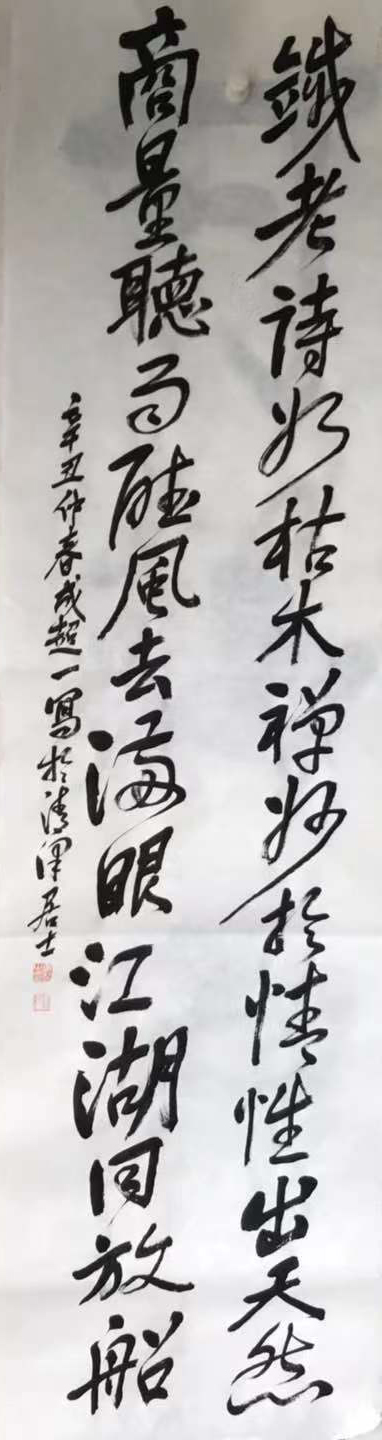 鐵老詩如枯木禪妙於情性出天然
商量聽雨聽風去滿眼江湖同放船
辛丑仲春成超一寫於清澤居士